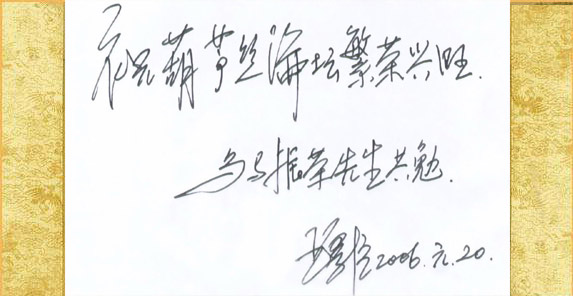 祝葫芦丝论坛繁荣兴旺.
与马振荣先生共勉.
2006.元.20.